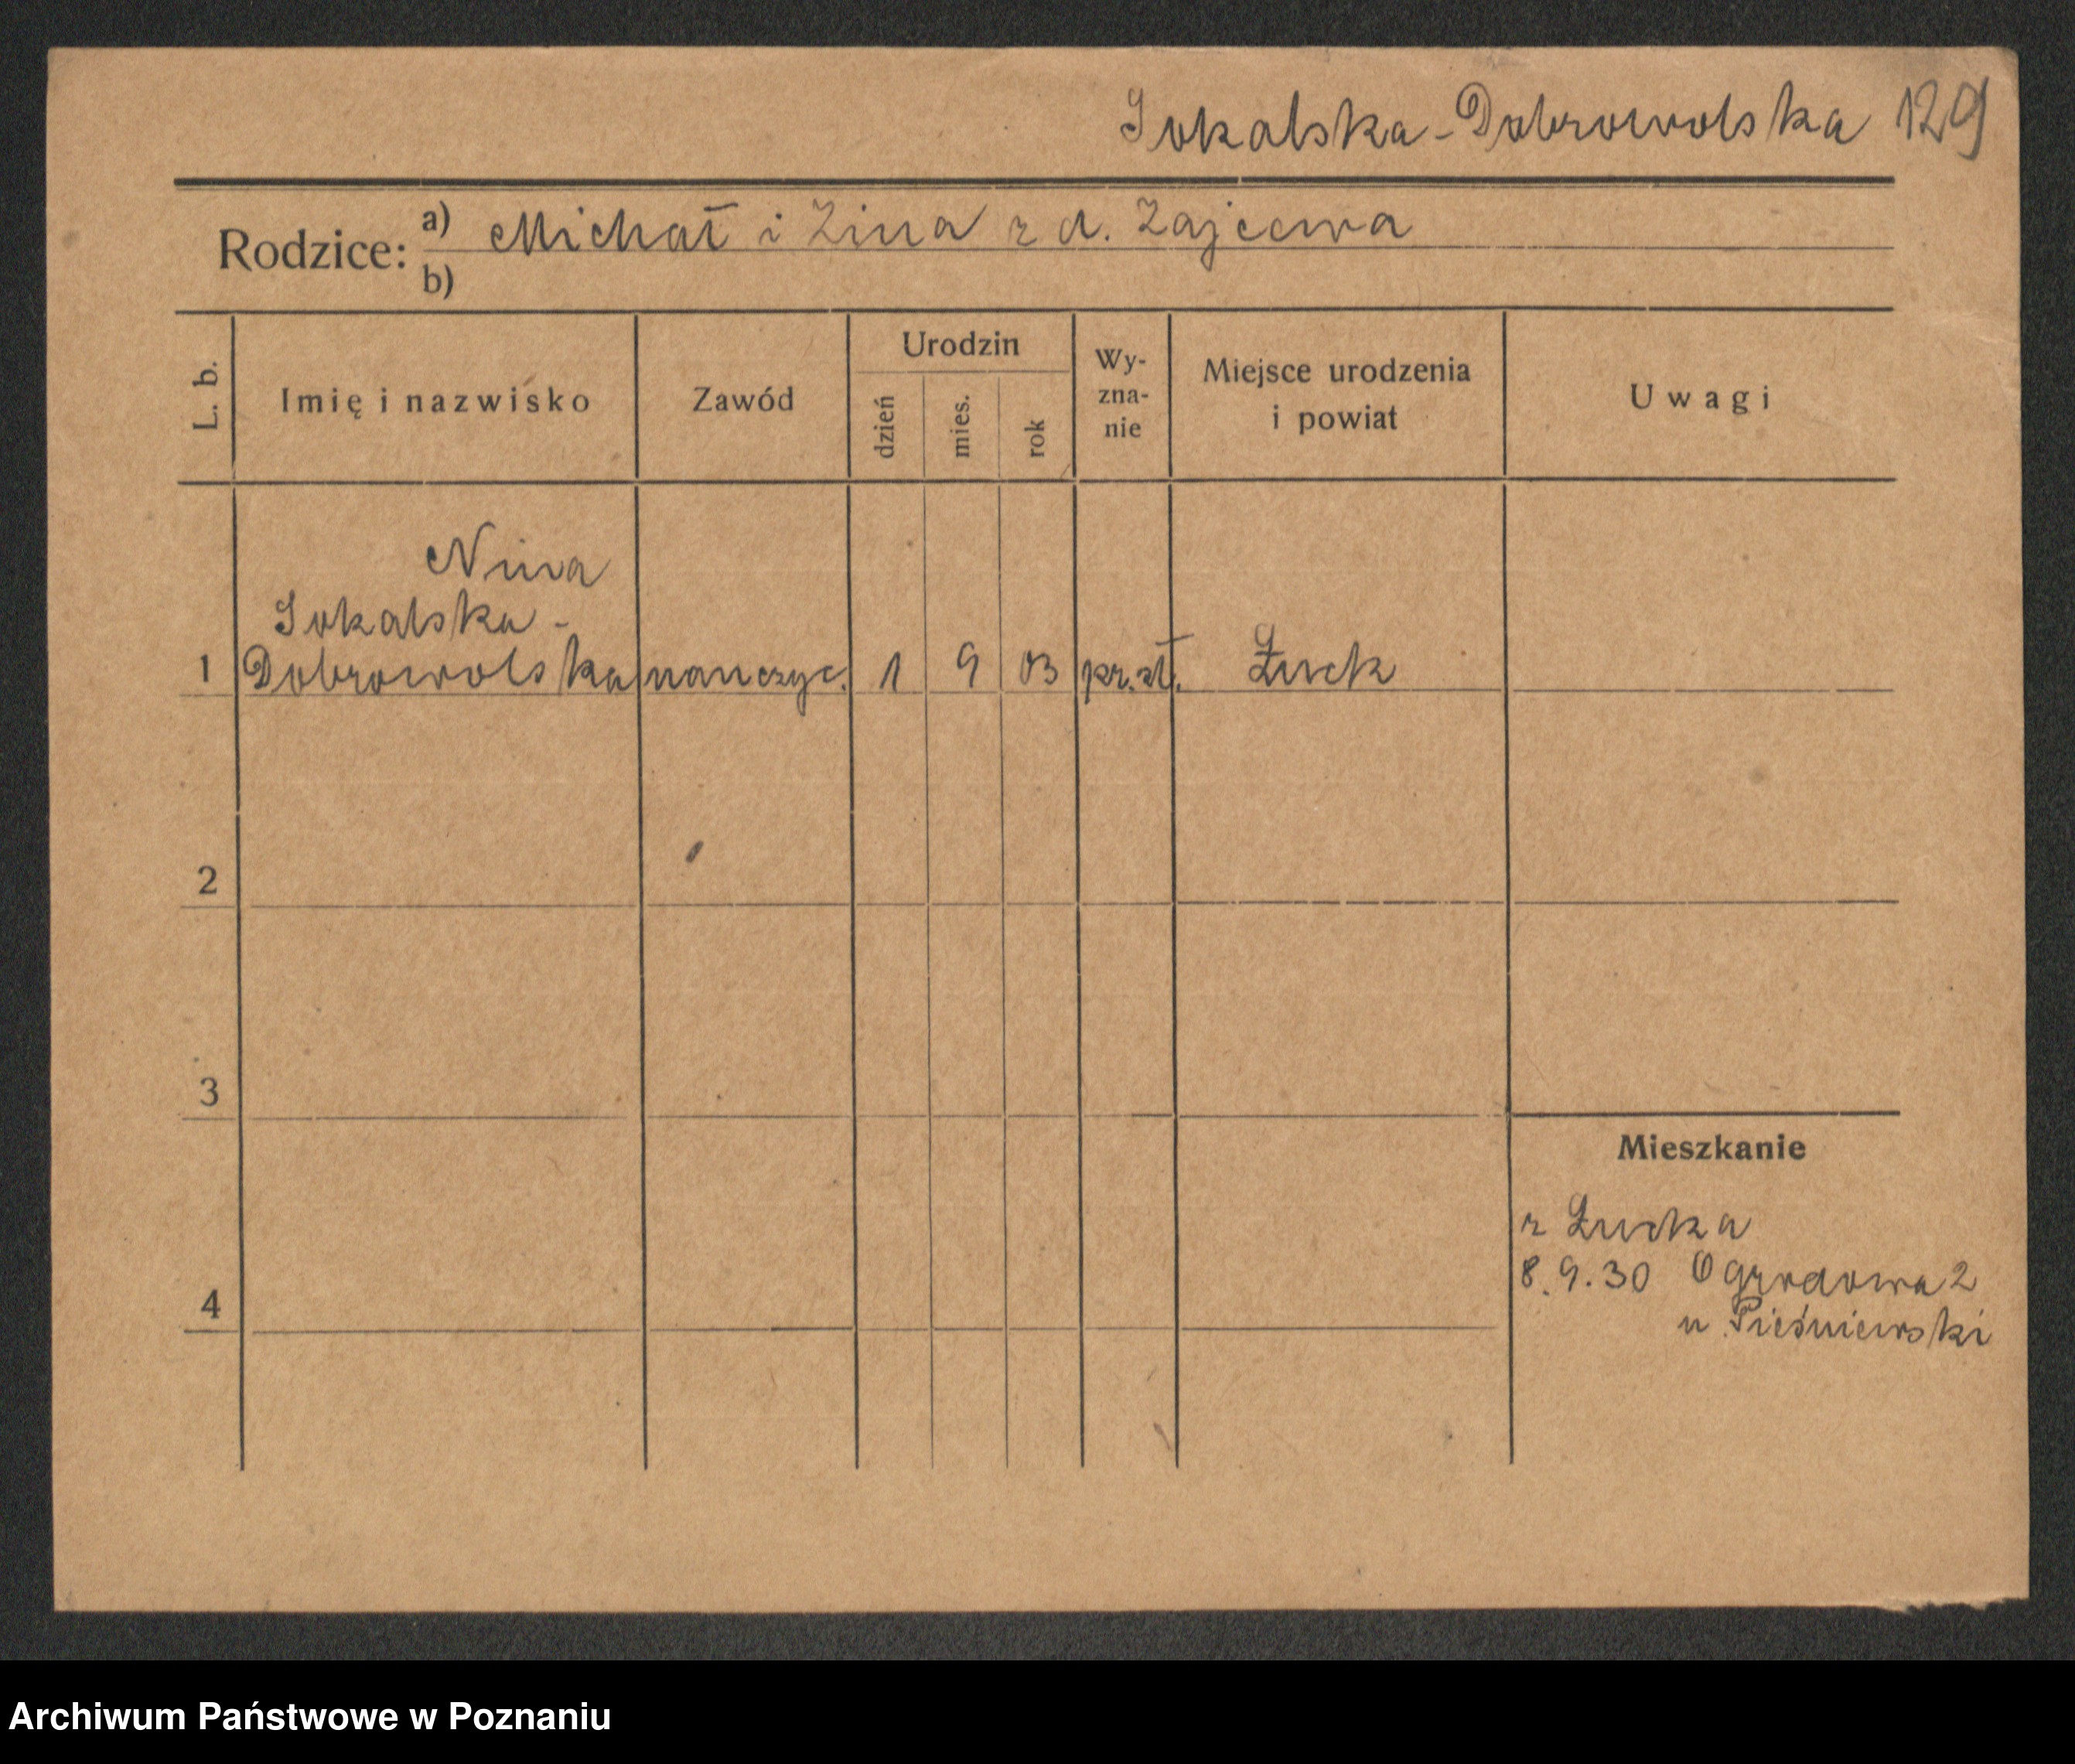 Sokalska-Dobrowolska 129
Rodzice: a) Michał i Zina z d. Zajcewa
b)
L. b.
Imię i nazwisko
Zawód
Urodzin
dzień
mies.
rok
Wy-
zna-
nie
Miejsce urodzenia
i powiat
Uwagi
Nina
Sokalska-
1 Dobrowolska nauczyc. 1 9 03 pr.sł. Łuck
2
3
4
Mieszkanie
z Łucka
8.9.30 Ogrodowa 2
u Pieśniewski
Archiwum Państwowe w Poznaniu